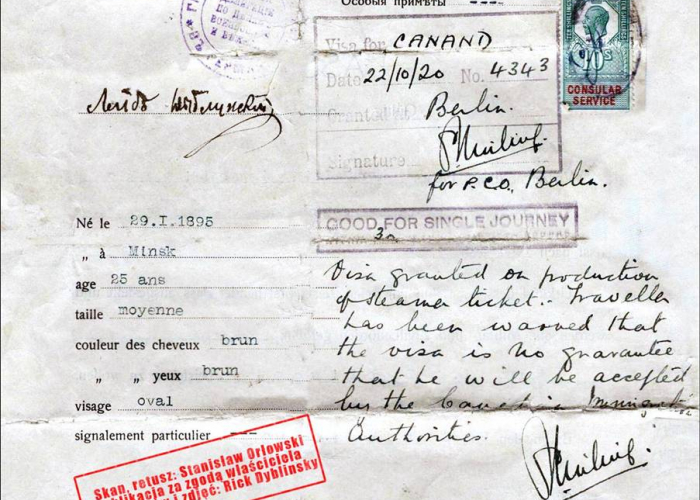 Особыя примѣты ---
Visa for CANAND
Date 22/10/20 No. 4343
Granted
Berlin.
Signature
for P.C.O. Berlin.
CONSULAR
SERVICE
GOOD FOR SINGLE JOURNEY
Né le 29.I.1895
„ à Minsk
age 25 ans
taille moyenne
couleur des cheveux brun
„ „ yeux brun
visage oval
signalement particulier ---
Visa granted on production
of steamer ticket.- Traveller
has been warned that
the visa is no guarantee
that he will be accepted
by the Immigration
Authorities.
Skan, retusz: Stanisław Orłowski
blikacja za zgodą właściciela
i zdjęć: Rick Dyblinsky